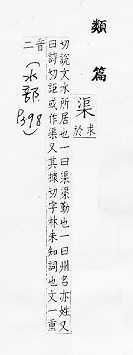 類篇
渠求於
切說文水所居也一曰渠渠勤也一曰州名亦姓又
臼許切詎或作渠又其據切字林未知詞也文一重
音二
(水部 P398)